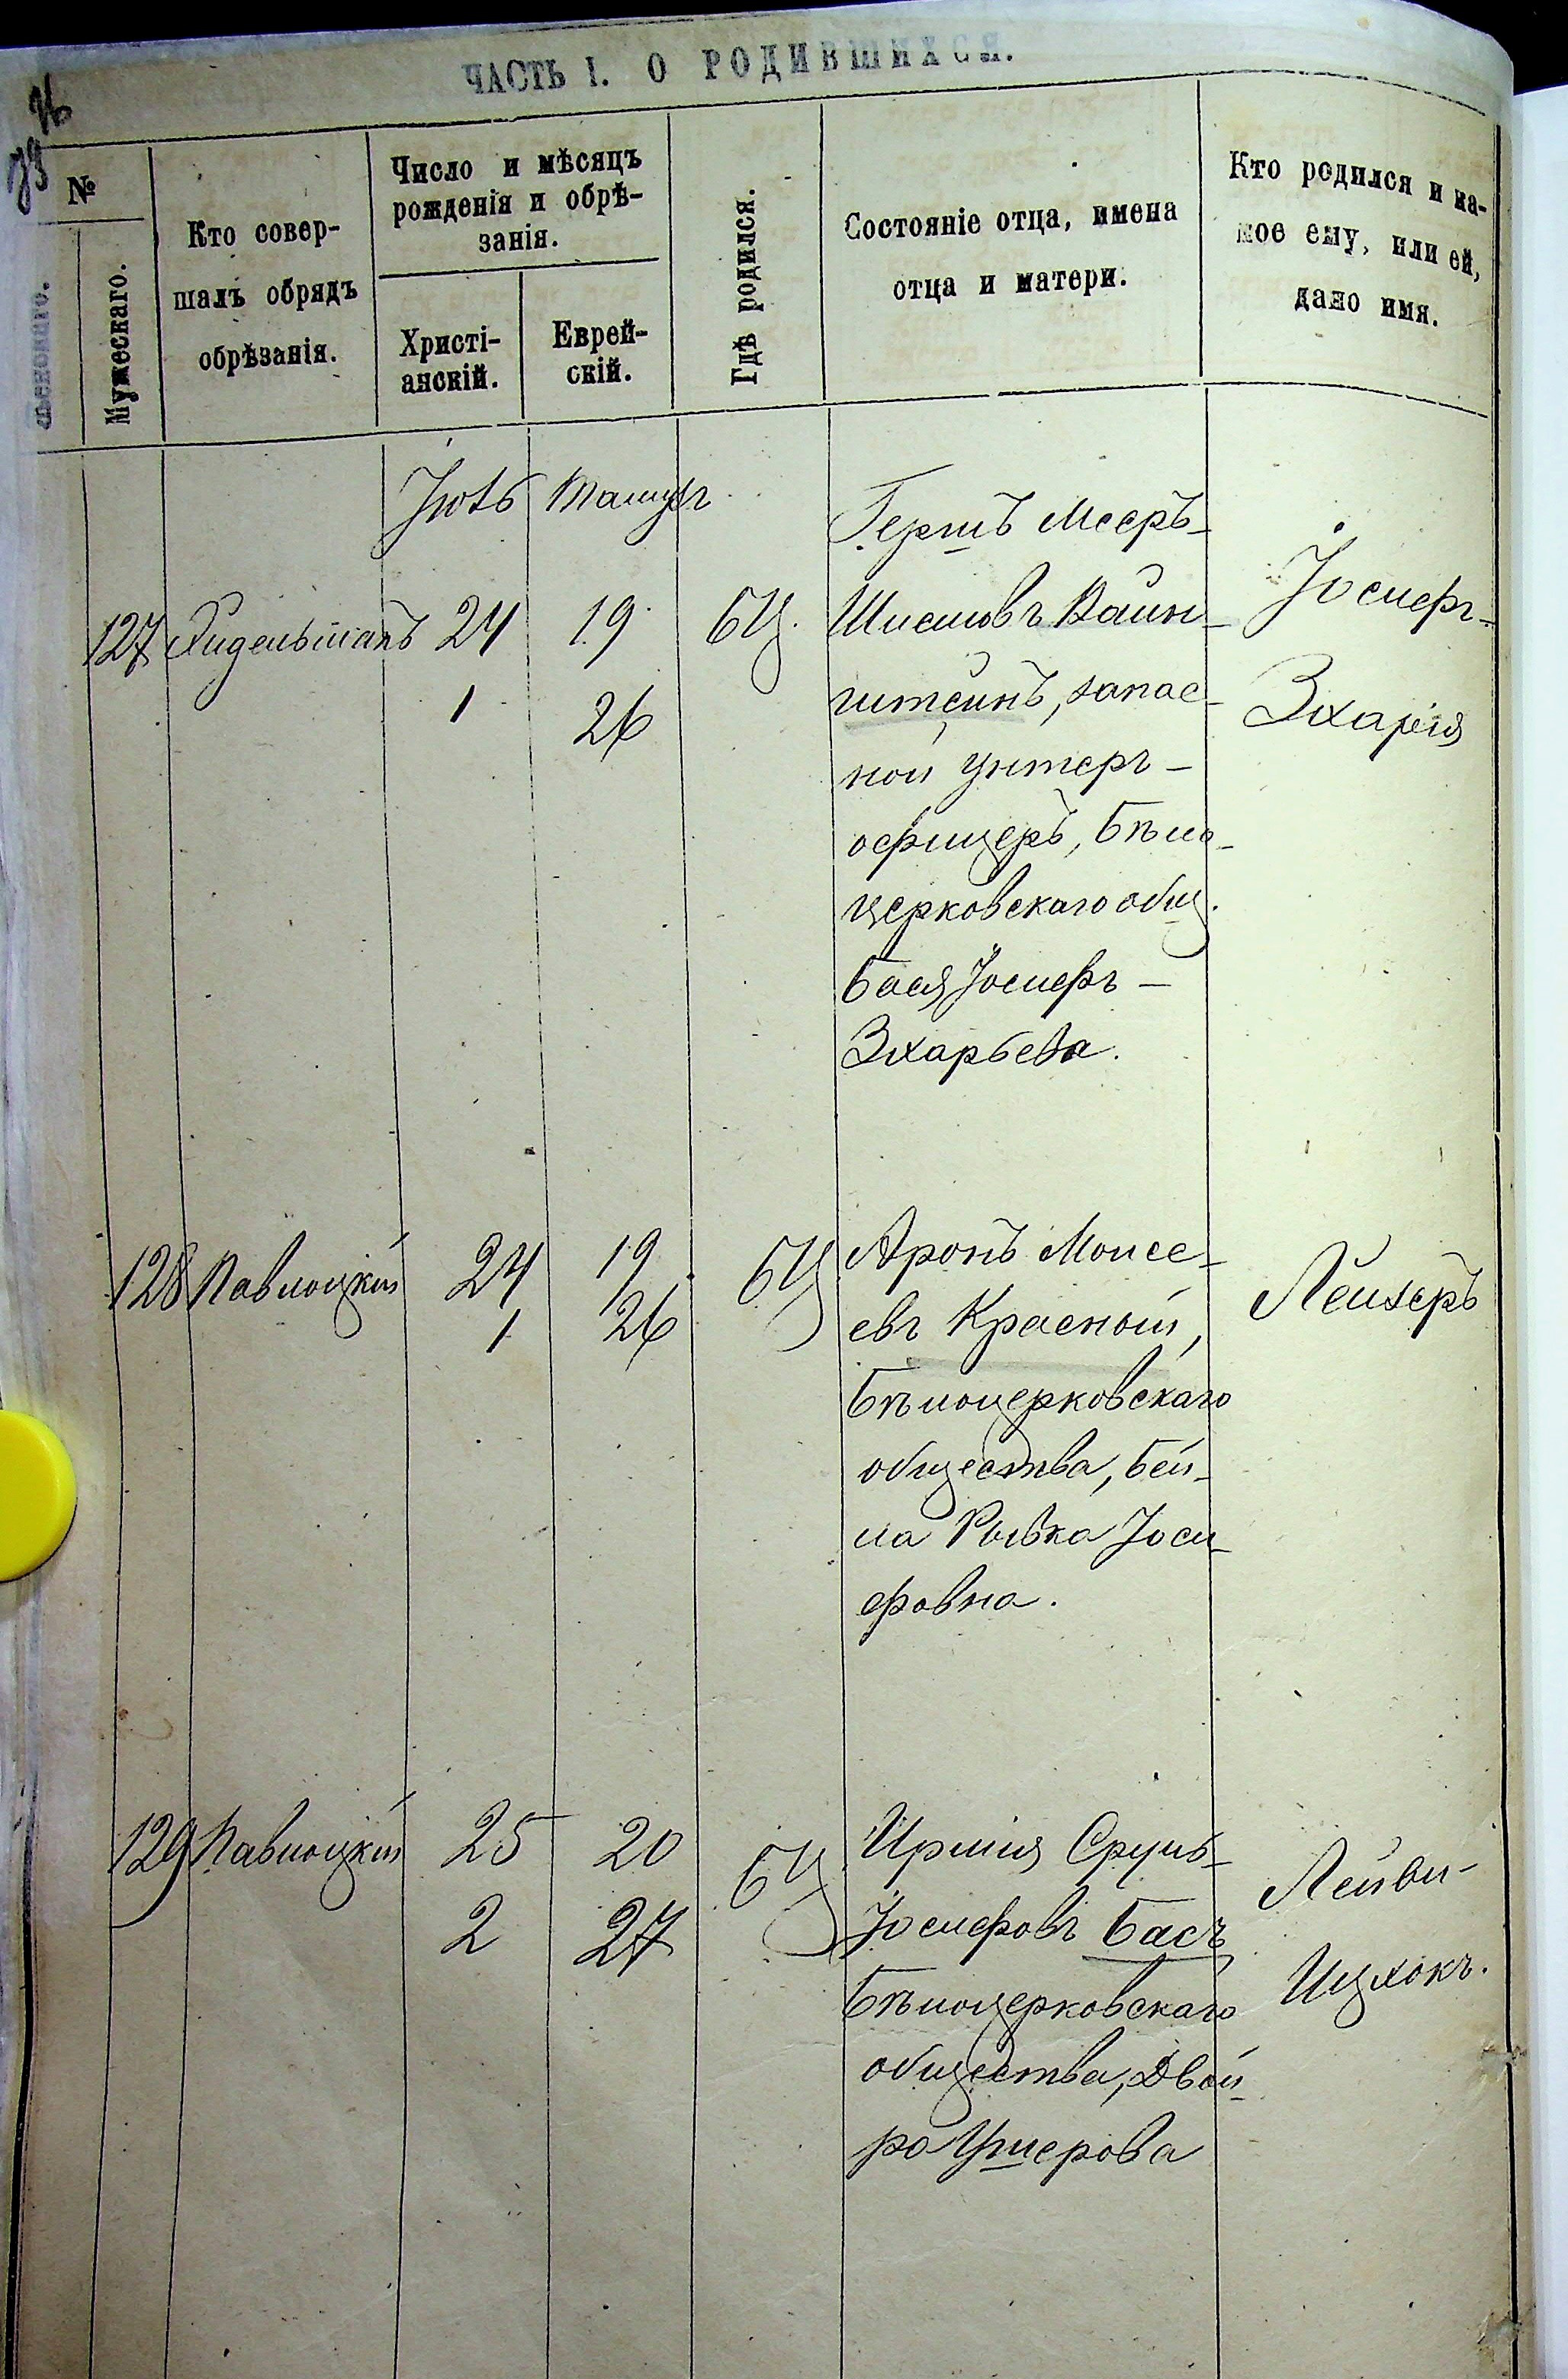 ЧАСТЬ I. О РОДИВШИХСЯ.
№
Мужескаго.
Кто совер-
шалъ обрядъ
обрѣзанія.
Число и мѣсяцъ
рожденія и обрѣ-
занія.
Христі-
анскій.
Еврей-
скій.
Гдѣ родился.
Состояніе отца, имена
отца и матери.
Кто родился и ка-
кое ему, или ей,
дано имя.
Іюль Тамузъ
127 24 19 БЦ.
1 26
Гершъ Меєръ-
Шиємовъ Вайн-
штейнъ, запас-
ной унтеръ-
офицеръ, Бѣло-
церковскаго общ.
Бася Іосифъ-
Зхарьева.
Іосифъ-
Зхарія
128 Павлоцкій 24 19 БЦ
1 26
Аронъ Моисе-
евъ Красной,
Бѣлоцерковскаго
общества, Бей-
ла Рывка Іоси-
фовна.
Лейзеръ
129 Павлоцкій 25 20 БЦ
2 27
Ирмія Сруль-
Іосифовъ Басъ,
Бѣлоцерковскаго
общества, Двой-
ра Ушерова
Лейви-
Ицхокъ.